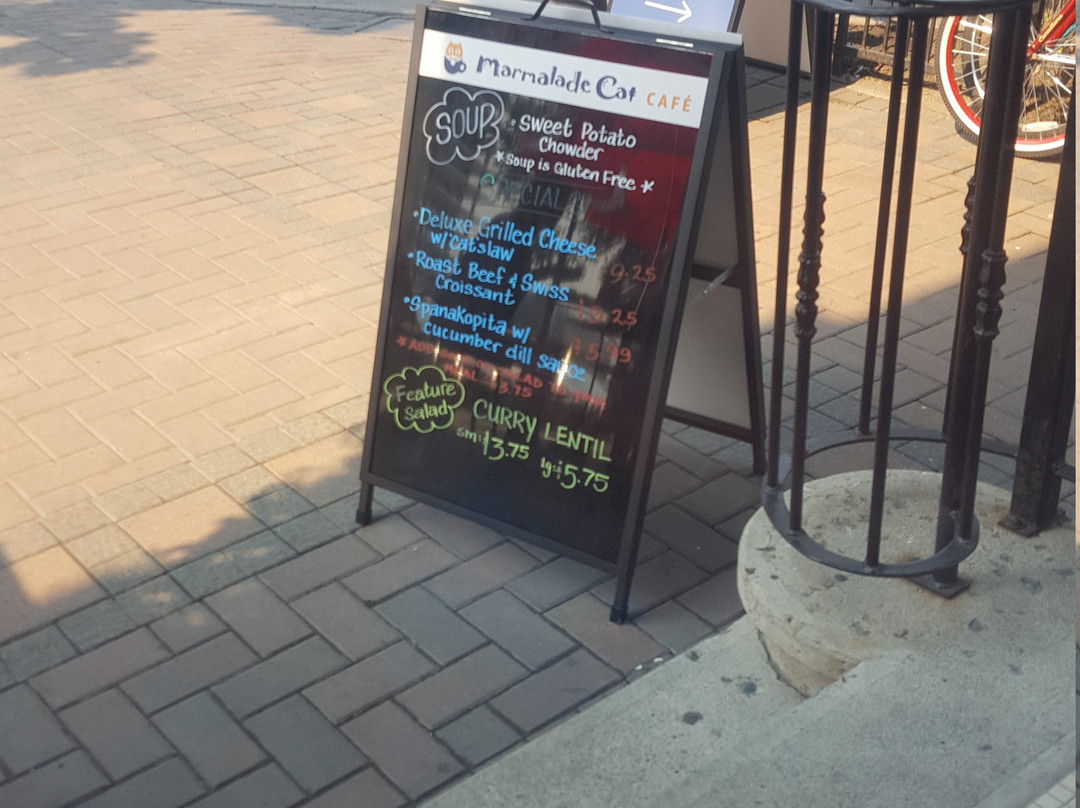 Marmalade Cat CAFÉ
SOUP
• Sweet Potato
Chowder
* Soup is Gluten Free *
SPECIALS
• Deluxe Grilled Cheese
w/ Cat'slaw
9.25
• Roast Beef & Swiss
Croissant
.25
• Spanakopita w/
cucumber dill sauce
$5.99
* ADD
SALAD TO YOUR
MEAL $3.75
Feature
Salad
CURRY LENTIL
sm: $3.75 lg: $5.75